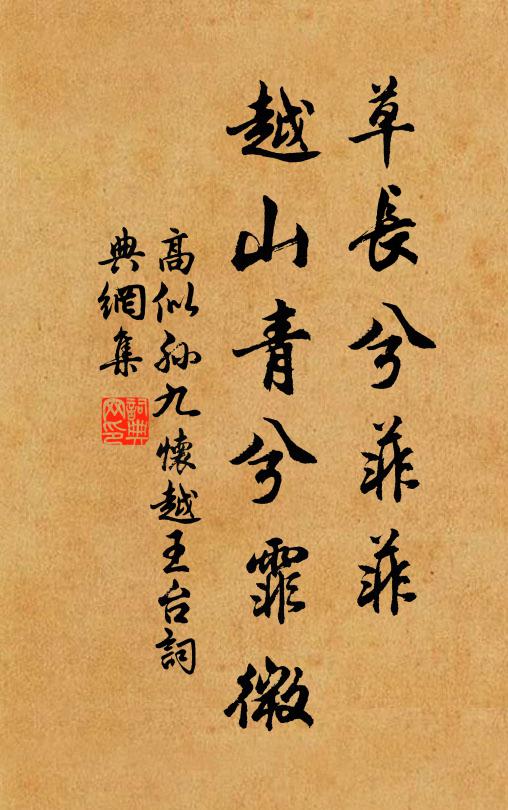 草長兮菲菲
越山青兮霏微
高似孫九懷越王台詞
典網集
詞典網印